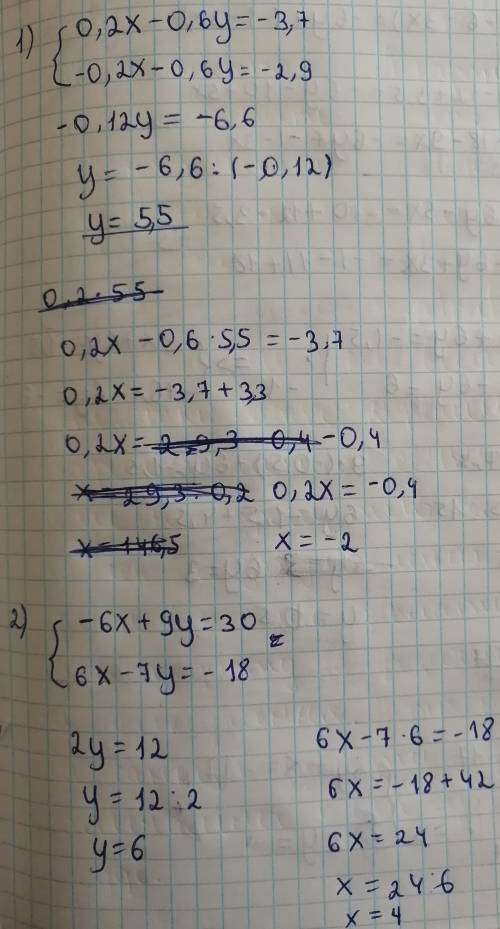 1) { 0,2x-0,6y=-3,7
-0,2x-0,6y=-2,9
-0,12y = -6,6
y = -6,6 : (-0,12)
y = 5,5
0,2·55
0,2x - 0,6·5,5 = -3,7
0,2x = -3,7+3,3
0,2x = -0,4
0,2x = -0,4
x = 146,5 x = -2
2) { -6x+9y=30
6x-7y=-18
2y=12 6x-7·6=-18
y=12:2 6x=-18+42
y=6 6x=24
x=24:6
x=4